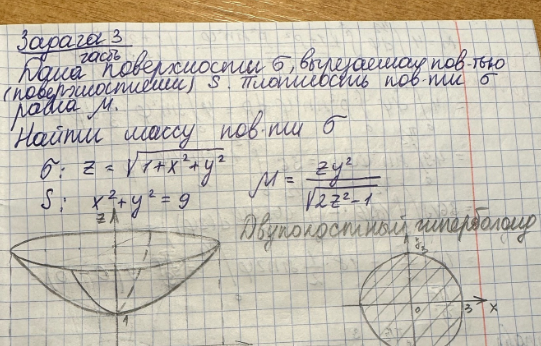 Задача 3
часть
Дана поверхности σ, вырезаемая пов-тью
(поверхностями) S. Плотность пов-ти σ
равна M.
Найти массу пов-ти σ
σ: z = √(1+x²+y²)
M = zy²/√(2z²-1)
S: x²+y² = 9
Двуполостный гиперболоид
z
1
y
3
0
3
x